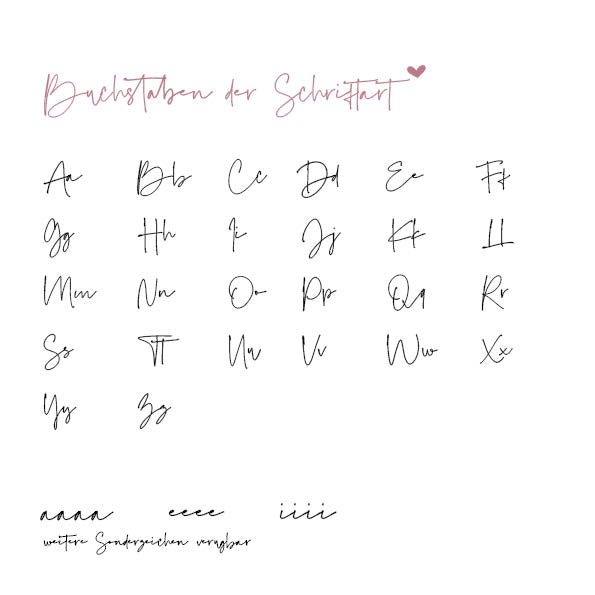 Buchstaben der Schriftart
Aa Bb Cc Dd Ee Ff
Gg Hh Ii Jj Kk Ll
Mm Nn Oo Pp Qq Rr
Ss Tt Uu Vv Ww Xx
Yy Zz
aaaa eeee iiii
weitere Sonderzeichen verugbar